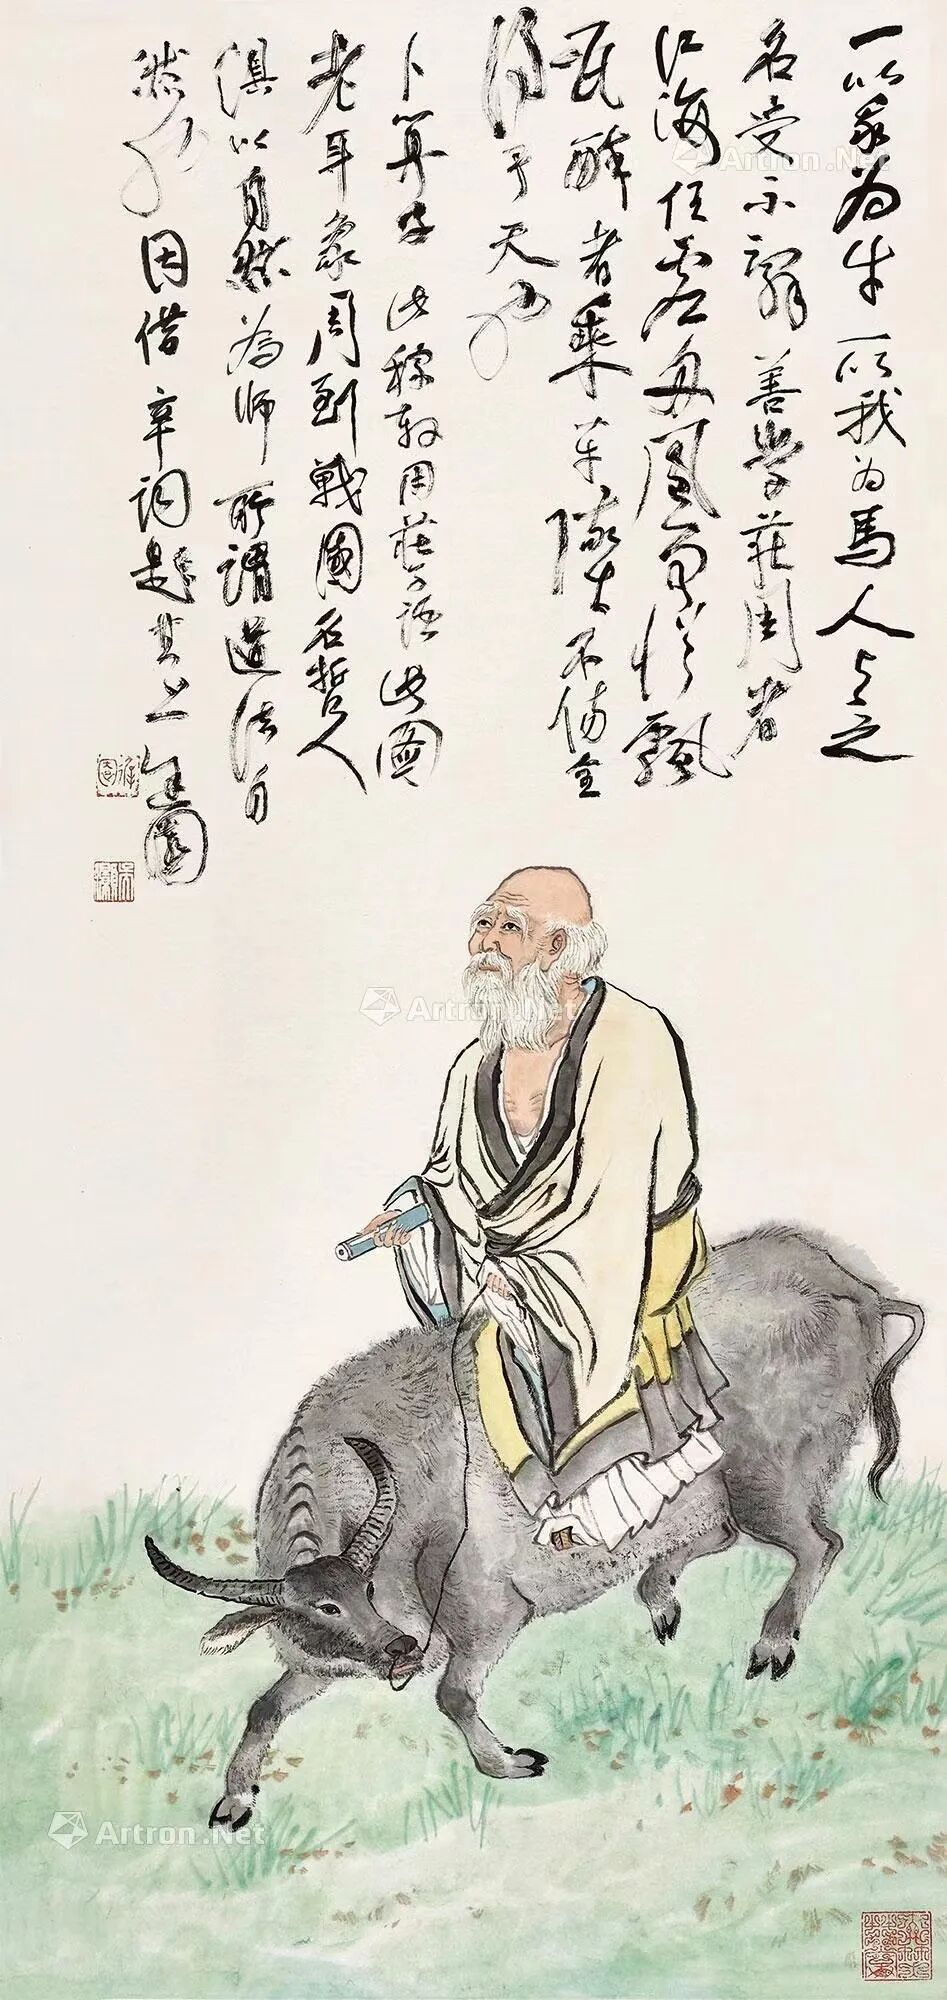 一以我为牛一以我为馬人与之
名受不辭善學莊周者
江海任虚舟風雨從飄
瓦醉者乘車墜不傷全
得于天也
卜算子此稼軒用莊子語此圖
老耳象周到戰國名哲人
俱以自然為師所謂道法自
然也因借辛詞題其上
Artron.Net
Artron.Net
Artron.Net